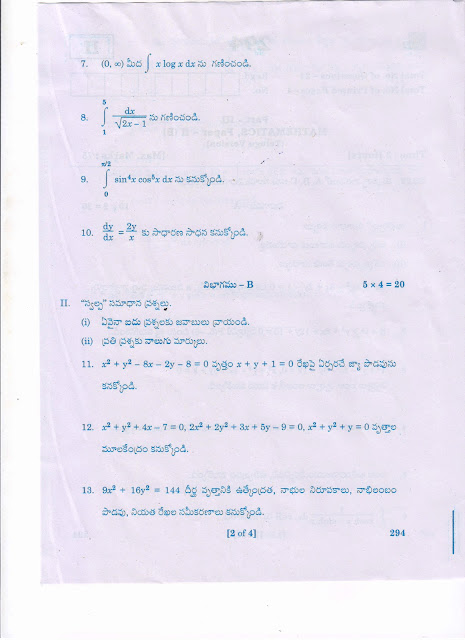 7. (0, ∞) మీద ∫ x log x dx ను గణించండి.
8. ∫₁⁵ dx/√(2x – 1) ను గణించండి.
9. ∫₀^(π/2) sin⁴x cos⁵x dx ను కనుక్కోండి.
10. dy/dx = 2y/x కు సాధారణ సాధన కనుక్కోండి.
విభాగము – B 5 × 4 = 20
II. "స్వల్ప" సమాధాన ప్రశ్నలు.
(i) ఏవైనా ఐదు ప్రశ్నలకు జవాబులు వ్రాయండి.
(ii) ప్రతి ప్రశ్నకు నాలుగు మార్కులు.
11. x² + y² – 8x – 2y – 8 = 0 వృత్తం x + y + 1 = 0 రేఖపై ఏర్పరచే జ్యా పొడవును
కనక్కోండి.
12. x² + y² + 4x – 7 = 0, 2x² + 2y² + 3x + 5y – 9 = 0, x² + y² + y = 0 వృత్తాల
మూలకేంద్రం కనుక్కోండి.
13. 9x² + 16y² = 144 దీర్ఘ వృత్తానికి ఉత్కేంద్రత, నాభుల నిరూపకాలు, నాభిలంబం
పొడవు, నియత రేఖల సమీకరణాలు కనుక్కోండి.
[2 of 4] 294